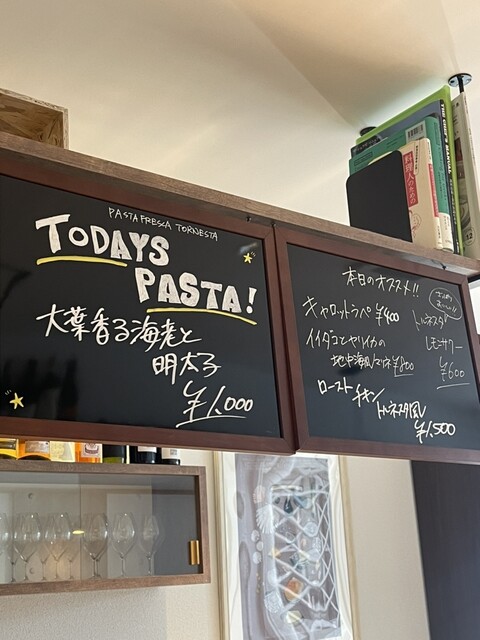 PASTA FRESCA TORNESTA
TODAYS
PASTA!
大葉香る海老と
明太子
¥1,000
本日のオススメ!!
キャロットラペ ¥400
イイダコとヤリイカの
地中海風マリネ ¥800
ローストチキン
トルネスタ風
¥1,500
トルネスタ
レモンサワー
¥600
料理人のための
THE CHEF'S MANUAL